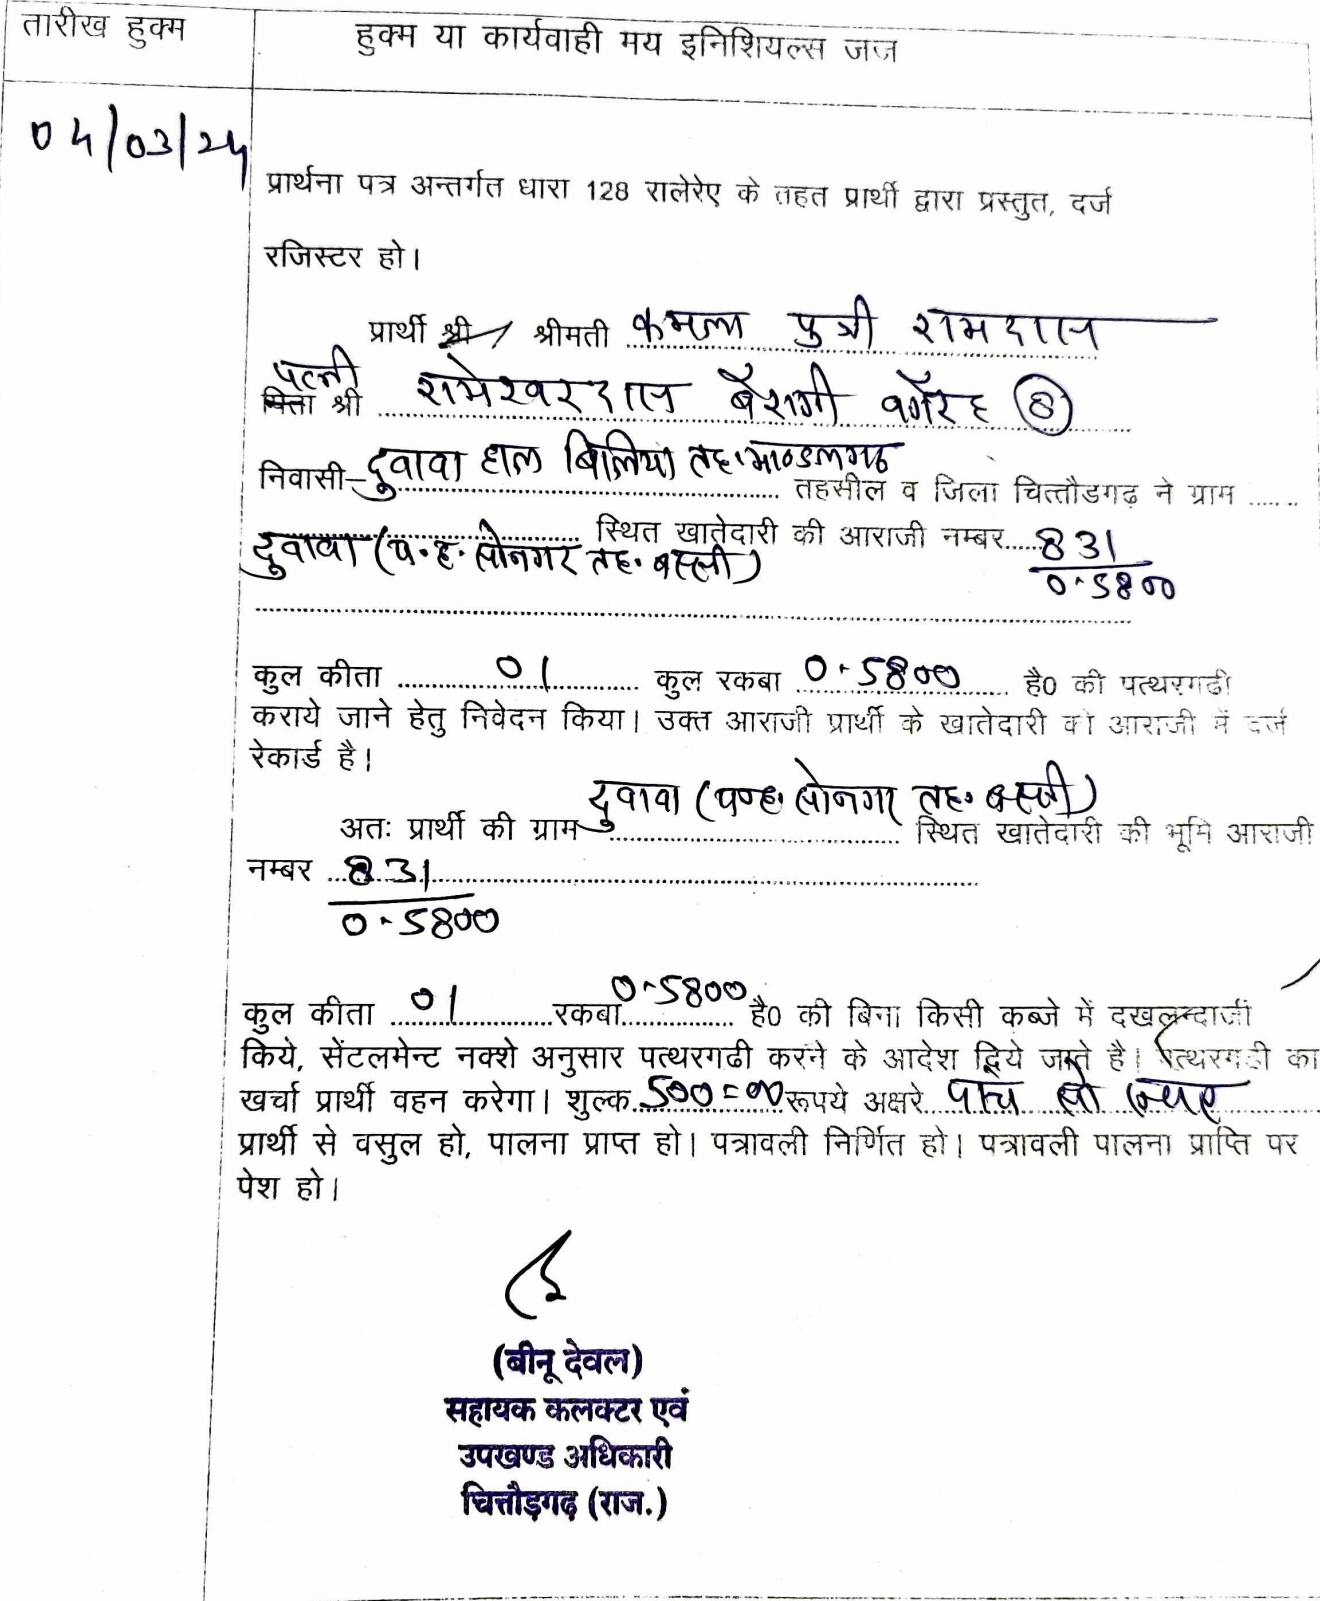 तारीख हुक्म
हुक्म या कार्यवाही मय इनिशियल्स जज
04/03/24
प्रार्थना पत्र अन्तर्गत धारा 128 रालेरेए के तहत प्रार्थी द्वारा प्रस्तुत, दर्ज
रजिस्टर हो।
प्रार्थी श्री / श्रीमती कमला पुत्री रामदास
पत्नी
पिता श्री रामेश्वरदास बैरागी वगैरह (8)
निवासी दुवावा हाल बिलिया तह. माण्डलगढ तहसील व जिला चित्तौडगढ़ ने ग्राम ......
दुवावा (प.ह. सोनगर तह. बस्सी) स्थित खातेदारी की आराजी नम्बर..... 831
0.5800
कुल कीता 01 कुल रकबा 0.5800 है0 की पत्थरगढी
कराये जाने हेतु निवेदन किया। उक्त आराजी प्रार्थी के खातेदारी की आराजी में दर्ज
रेकार्ड है।
अतः प्रार्थी की ग्राम दुवावा (प.ह. सोनगर तह. बस्सी) स्थित खातेदारी की भूमि आराजी
नम्बर 831
0.5800
कुल कीता 01 रकबा 0.5800 है0 की बिना किसी कब्जे में दखलन्दाजी
किये, सेंटलमेन्ट नक्शे अनुसार पत्थरगढी करने के आदेश दिये जाते है। पत्थरगढी का
खर्चा प्रार्थी वहन करेगा। शुल्क 500=00 रूपये अक्षरे पांच सो रूपए
प्रार्थी से वसुल हो, पालना प्राप्त हो। पत्रावली निर्णित हो। पत्रावली पालना प्राप्ति पर
पेश हो।
(बीनू देवल)
सहायक कलक्टर एवं
उपखण्ड अधिकारी
चित्तौड़गढ़ (राज.)